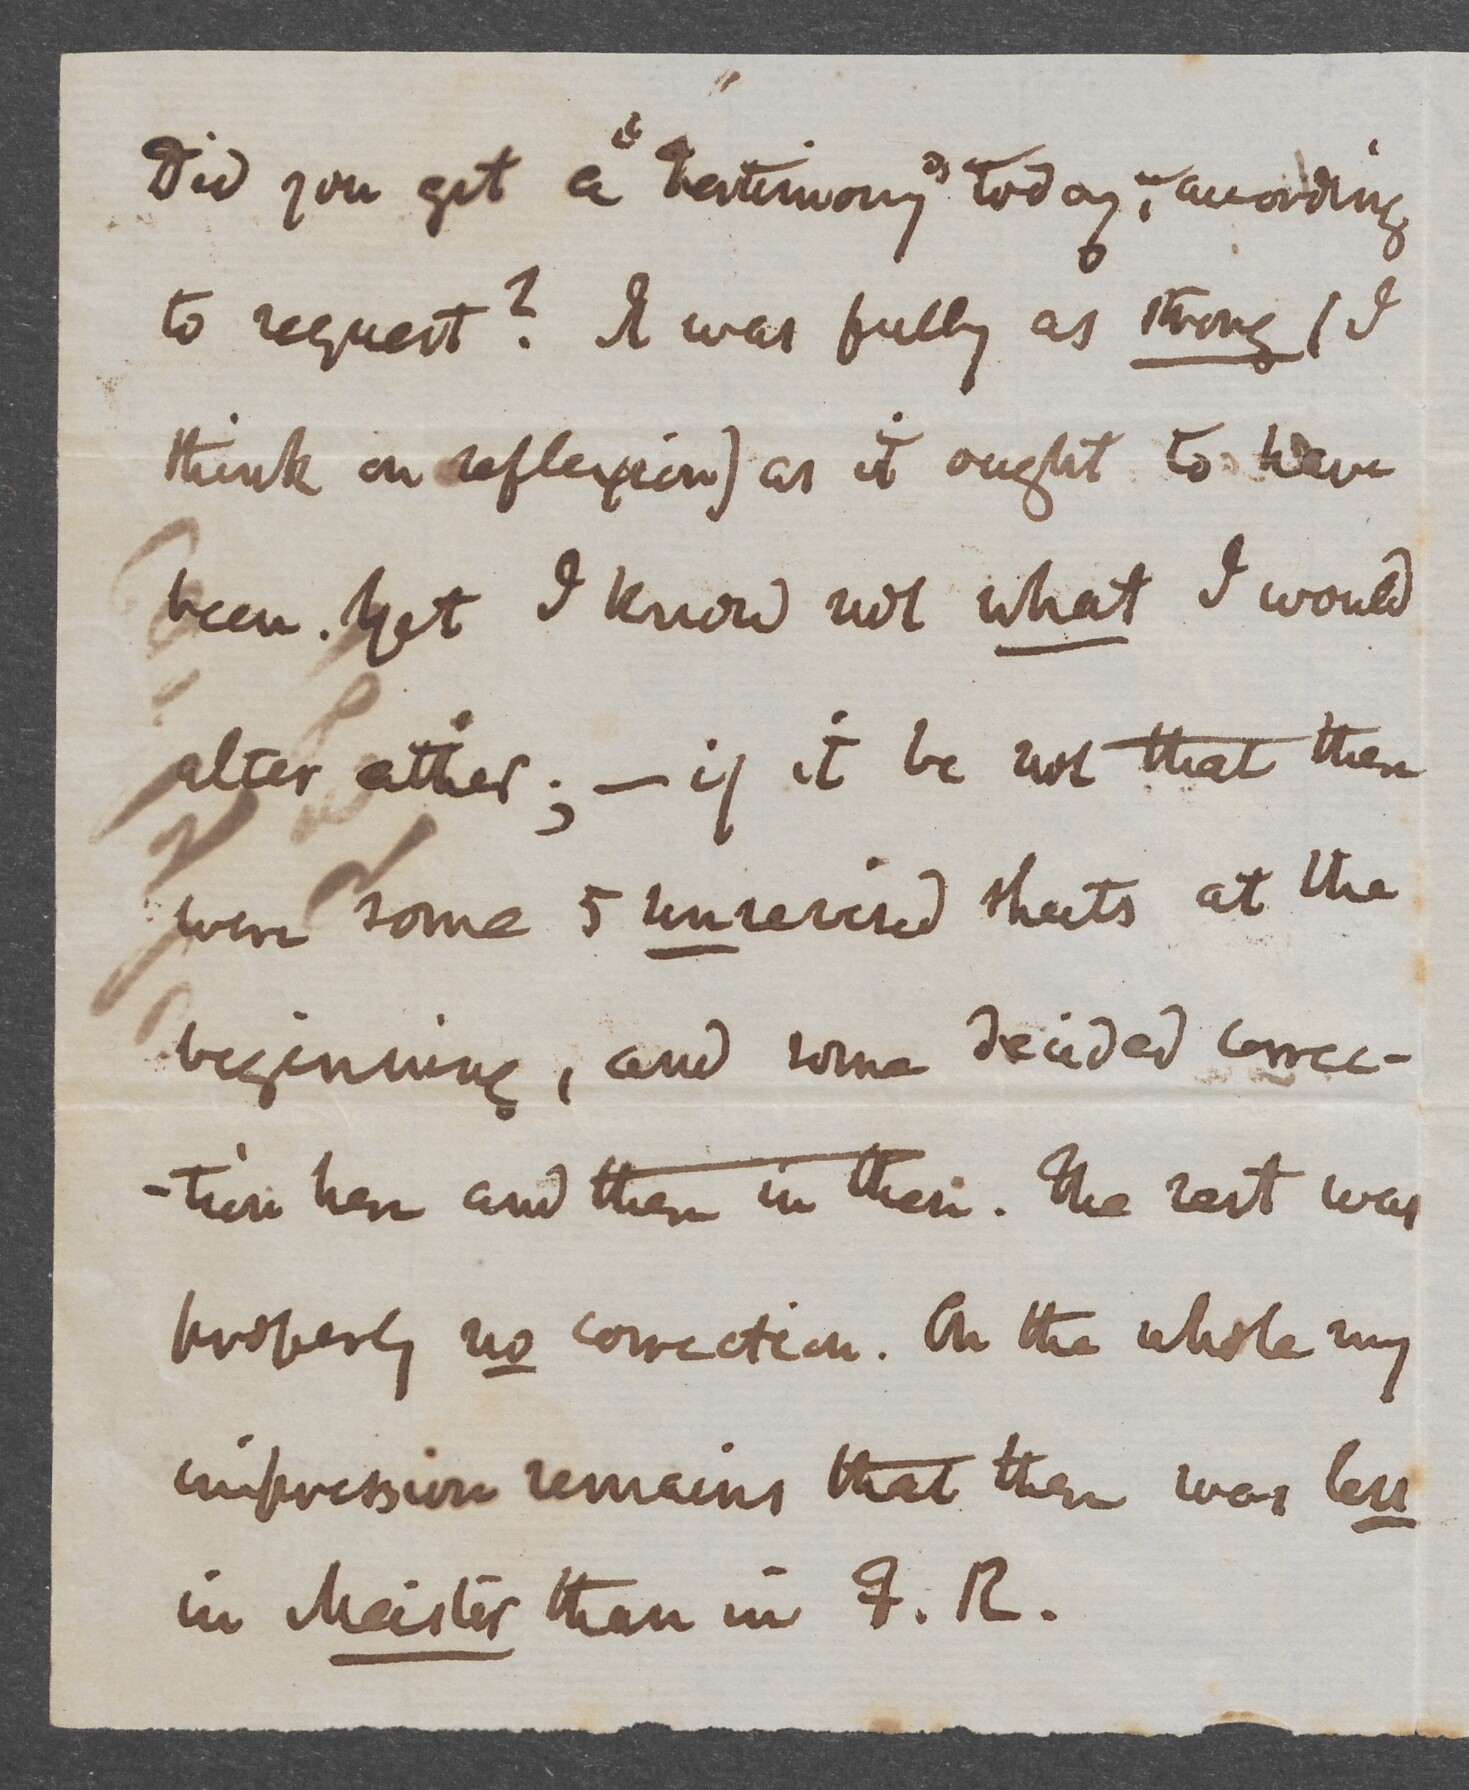 Did you get a "Testimony" today, according
to request? It was fully as strong (I
think on reflexion) as it ought to have
been. Yet I know not what I would
alter either; — if it be not that there
were some 5 unrevised sheets at the
beginning, and some decided correc-
-tion here and there in them. The rest was
properly no correction. On the whole my
impression remains that there was less
in Meister than in F. R.